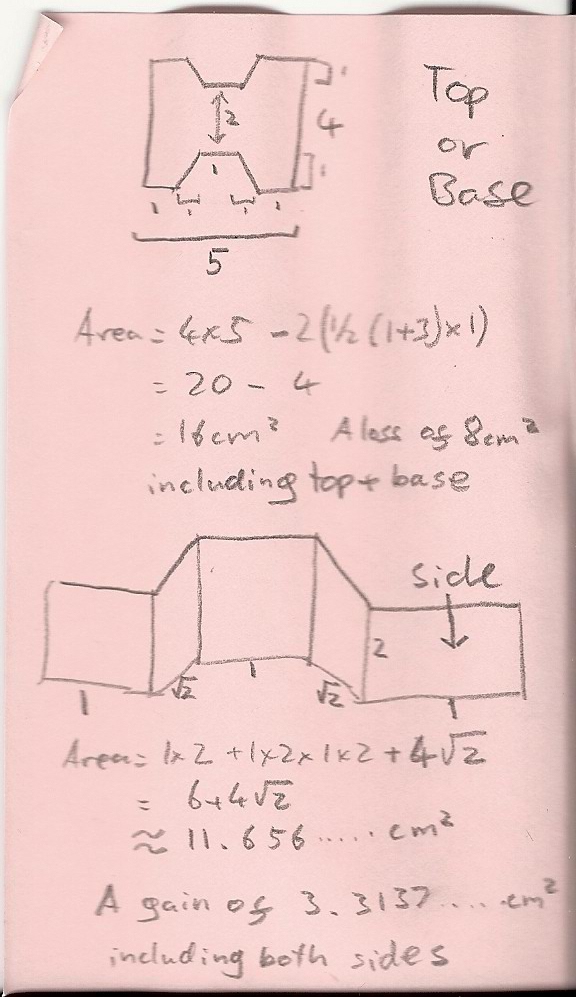 Top
or
Base
1
2
4
1
1
1 1 1 1
5
Area = 4×5 - 2(½(1+3)×1)
= 20 - 4
= 16cm² A loss of 8cm²
including top + base
side
2
1 √2 1 √2 1
Area = 1×2 + 1×2×1×2 + 4√2
= 6+4√2
≈ 11.656..... cm²
A gain of 3.3137.... cm²
including both sides